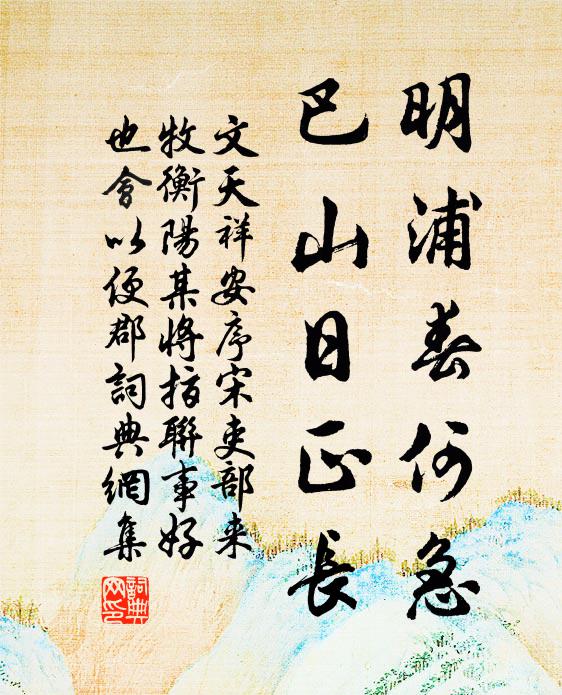 明浦春何急
巴山日正長
文天祥安序宋吏部来
牧衡陽某將指聯事好
也會以便郡詞典網集
詞典
网印